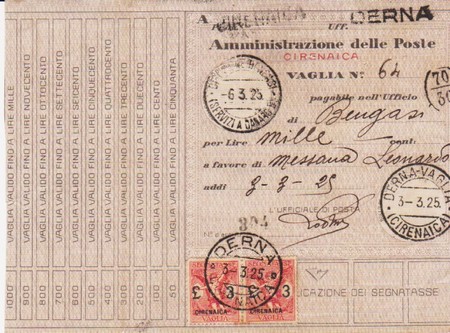 A. CIRENAICA
Uff. DERNA
Amministrazione delle Poste
CIRENAICA
VAGLIA N° 64
70
30
pagabile nell'Ufficio
di Bengasi
per Lire Mille cent.
a favore di Messana Leonardo
addì 3-3-25
L'UFFICIALE DI POSTA
-6.3.25
DERNA-VAGLIA
3-3.25
(CIRENAICA)
304
DERNA
3-3.25
£ 3 3
VAGLIA
CIRENAICA CIRENAICA
UCAZIONE DEI SEGNATASSE
VAGLIA VALIDO FINO A LIRE MILLE
VAGLIA VALIDO FINO A LIRE NOVECENTO
VAGLIA VALIDO FINO A LIRE OTTOCENTO
VAGLIA VALIDO FINO A LIRE SETTECENTO
VAGLIA VALIDO FINO A LIRE SEICENTO
VAGLIA VALIDO FINO A LIRE CINQUECENTO
VAGLIA VALIDO FINO A LIRE QUATTROCENTO
VAGLIA VALIDO FINO A LIRE TRECENTO
VAGLIA VALIDO FINO A LIRE DUECENTO
VAGLIA VALIDO FINO A LIRE CENTO
VAGLIA VALIDO FINO A LIRE CINQUANTA
1000 900 800 700 600 500 400 300 200 100 50